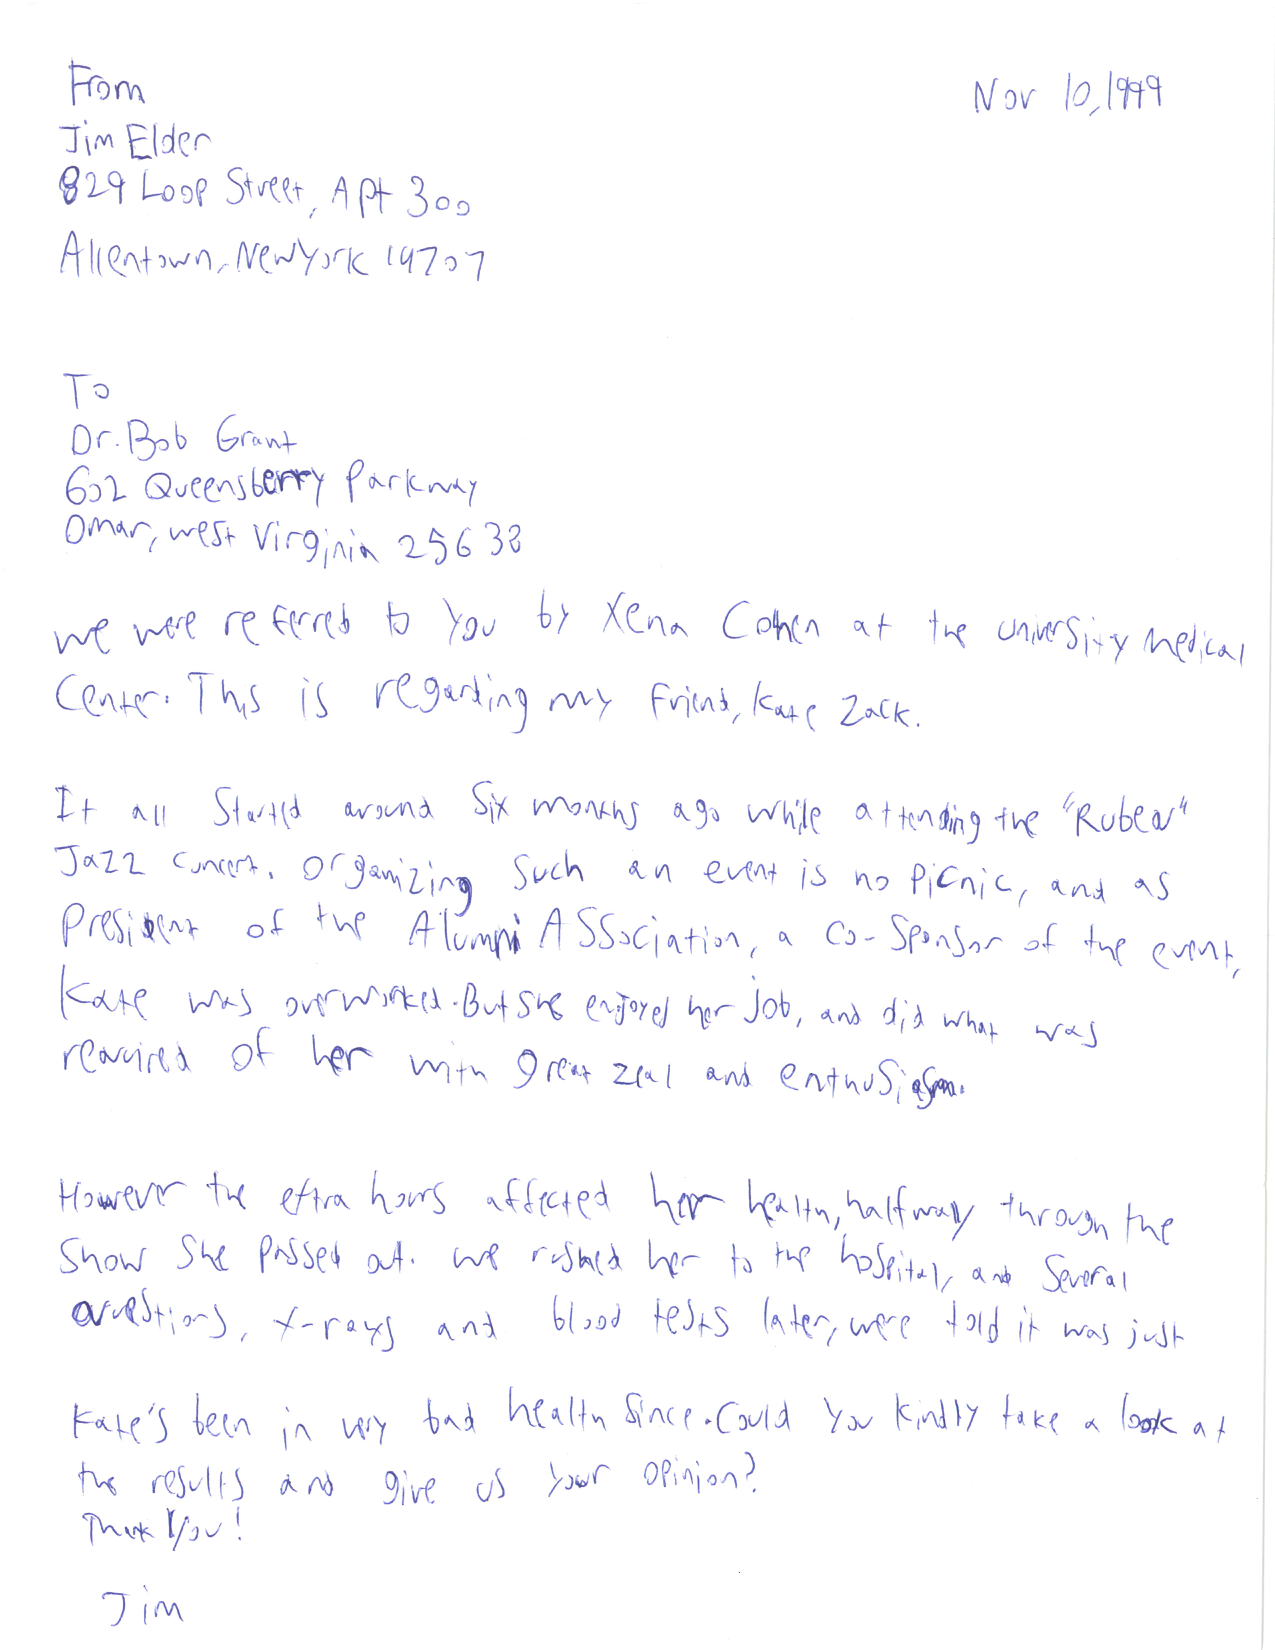 From
Nov 10, 1999
Jim Elder
829 Loop Street, Apt 300
Allentown, New York 14707
To
Dr. Bob Grant
602 Queensberry Parkway
Omar, west Virginia 25638
we were referred to you by Xena Cohen at the university medical
Center. This is regarding my friend, Kate Zack.
It all Started around Six months ago while attending the "Rubeq"
Jazz concert. Organizing Such an event is no picnic, and as
President of the Alumni Association, a co-sponsor of the event,
Kate was overworked. But she enjoyed her job, and did what was
required of her with great zeal and enthusiasm.
However the extra hours affected her health, halfway through the
Show She passed out. we rushed her to the hospital, and Several
questions, x-rays and blood tests later, were told it was just
Kate's been in very bad health Since. Could You kindly take a look at
the results and give us your opinion?
Thank You!
Jim